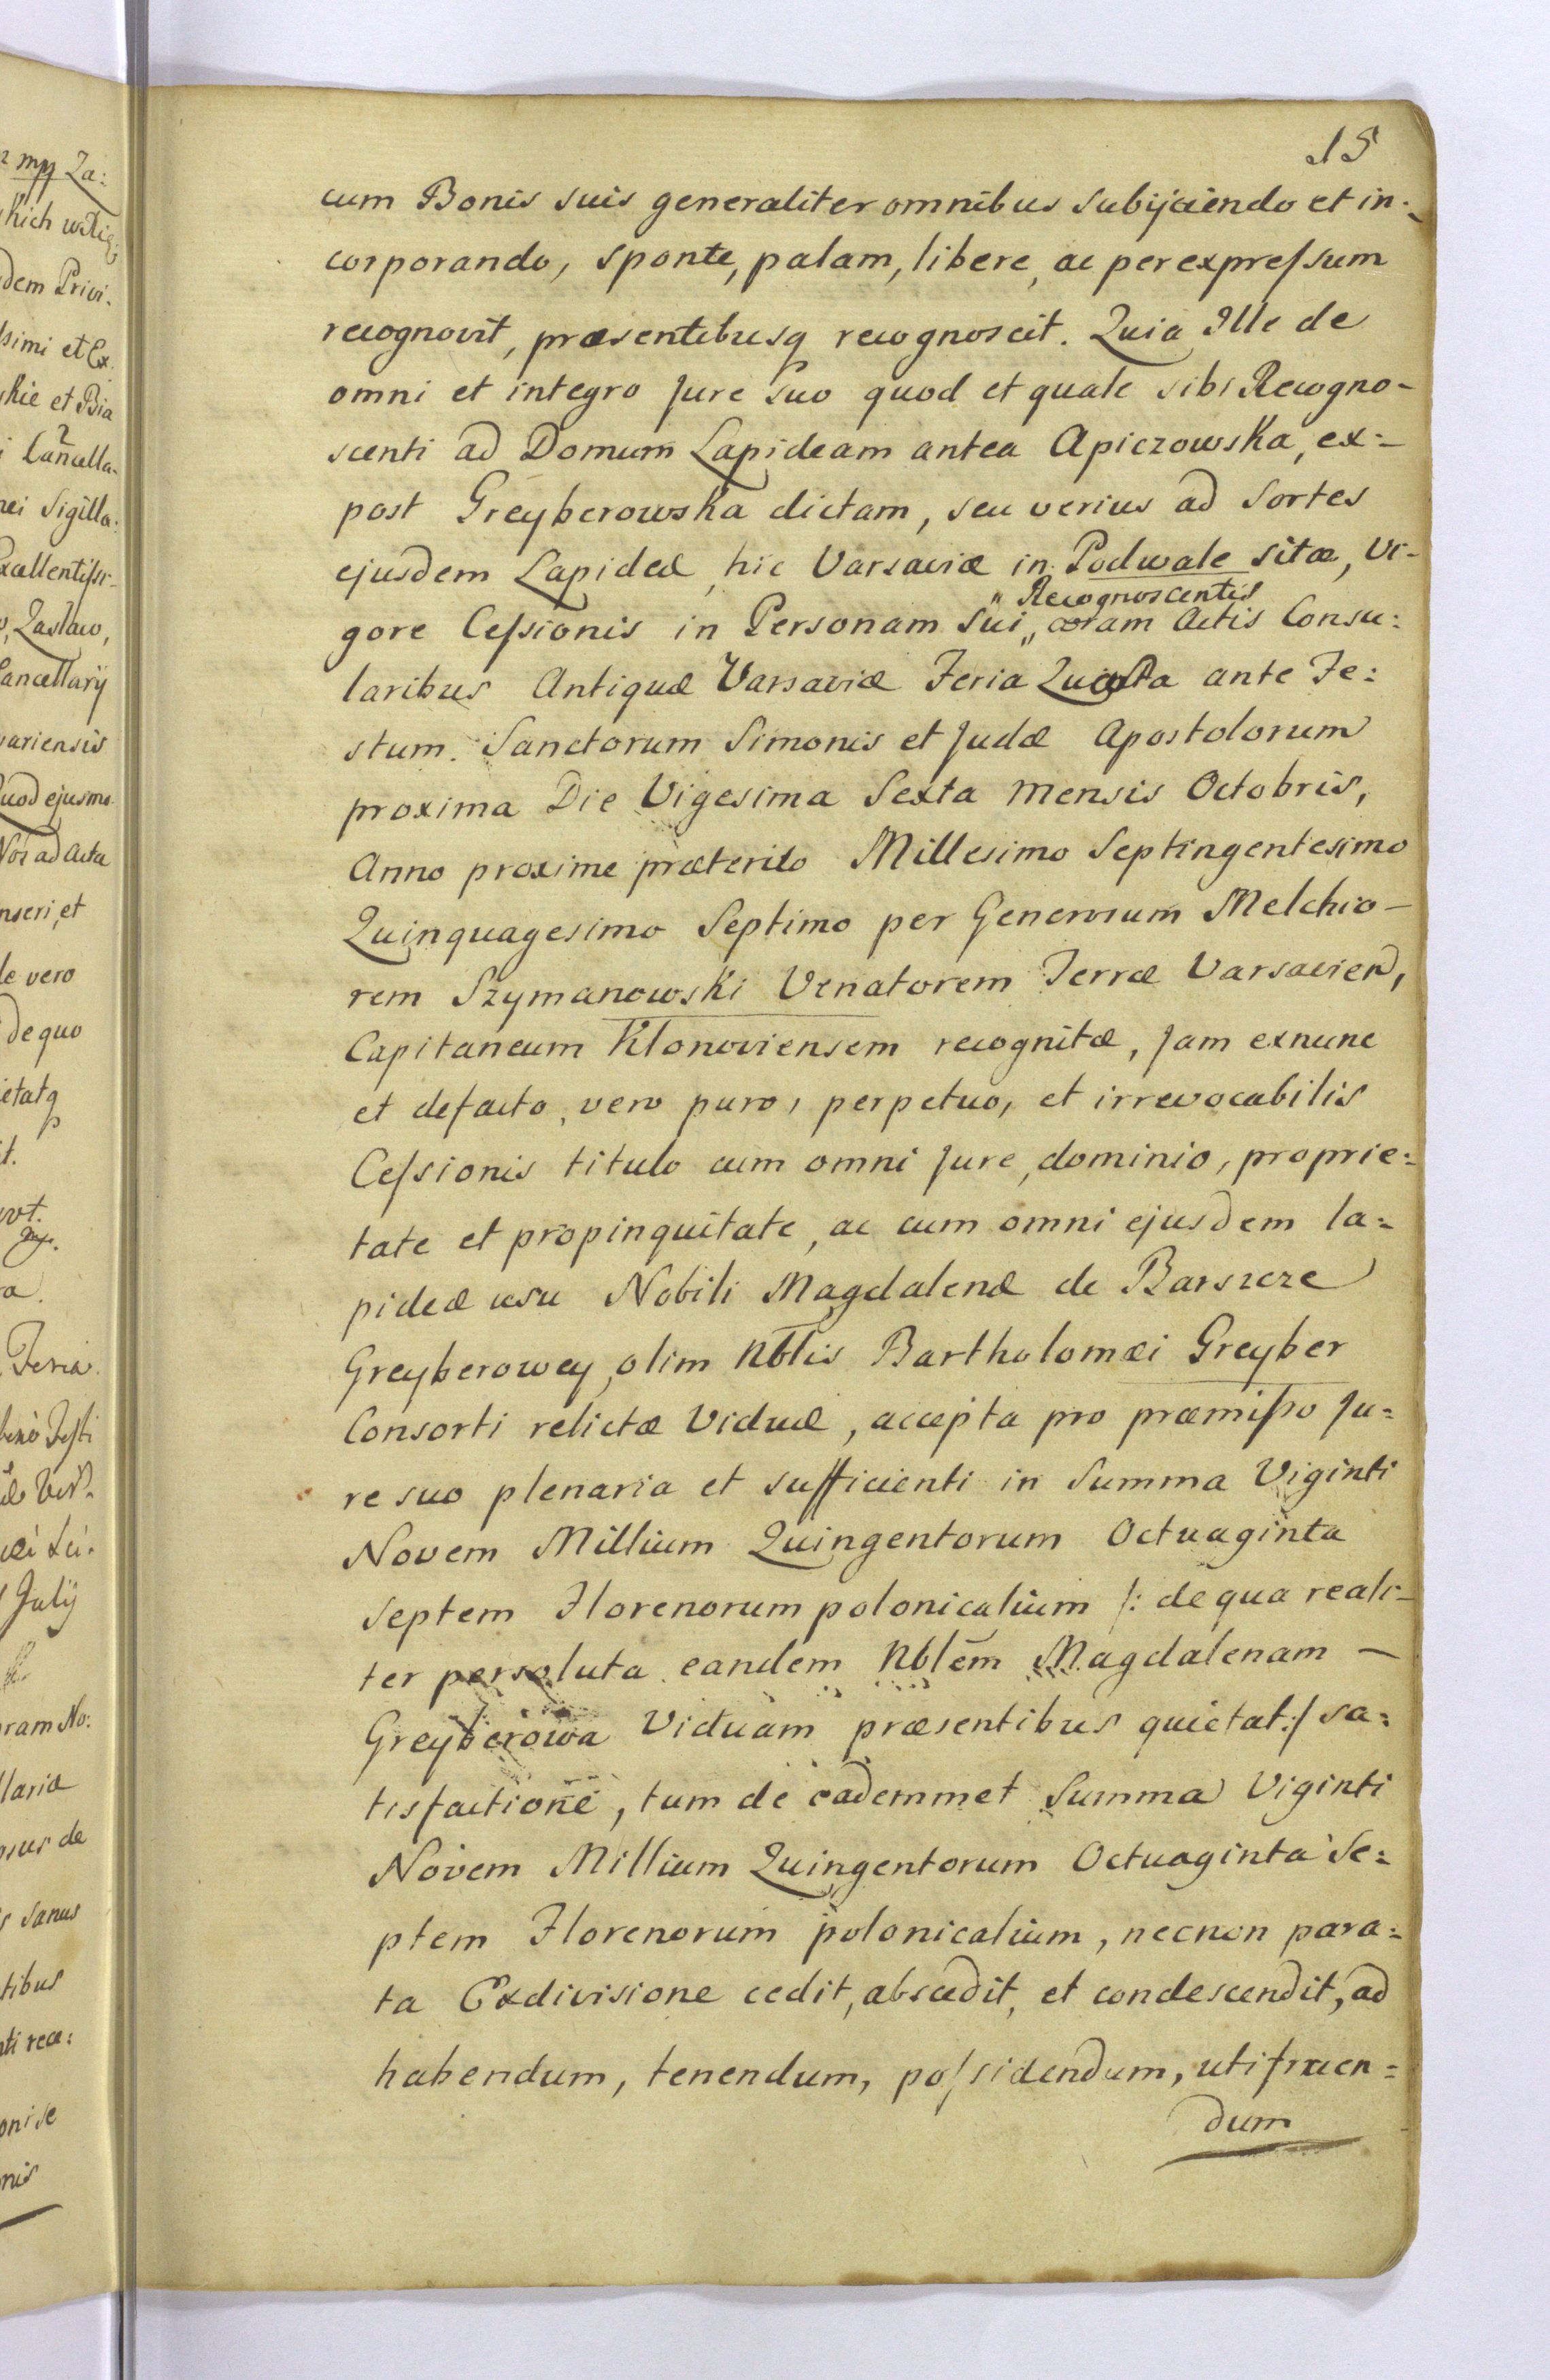 15
cum Bonis suis generaliter omnibus subijciendo et in-
corporando, sponte, palam, libere, ac per expressum
recognovit, præsentibusq recognoscit. Quia Ille de
omni et integro Jure Suo quod et quale sibi Recogno-
scenti ad Domum Lapideam antea Apiczowska, ex=
post Greyberowska dictam, seu verius ad Sortes
ejusdem Lapideæ, hic Varsaviæ in Podwale sitæ, Vi-
" Recognoscentis
gore Cessionis in Personam Sui " coram Actis Consu:
laribus Antiquæ Varsaviæ Feria ante Fe:
stum Sanctorum Simonis et Judæ Apostolorum
proxima Die Vigesima Sexta Mensis Octobris,
Anno proxime præterito Millesimo Septingentesimo
Quinquagesimo Septimo per Generosum Melchio-
rem Szymanowski Venatorem Terræ Varsavien,
Capitaneum Klonoviensem recognitæ, Jam exnunc
et defacto, vero puro, perpetuo, et irrevocabilis
Cessionis titulo cum omni Jure, dominio, proprie=
tate et propinquitate, ac cum omni ejusdem la=
pideæ usu Nobili Magdalenæ de Barszcze
Greyberowey, olim Nblis Bartholomæi Greyber
Consorti relictæ Viduæ, accepta pro præmisso Ju=
re suo plenaria et sufficienti in Summa Viginti
Novem Millium Quingentorum Octuaginta
Septem Florenorum polonicalium /: de qua reali-
ter persoluta eandem Nblem Magdalenam –
Greyberowa Viduam præsentibus quietat :/ sa=
tisfactione, tum de eademmet Summa Viginti
Novem Millium Quingentorum Octuaginta Se=
ptem Florenorum polonicalium, necnon para=
ta Exdivisione cedit, abscedit, et condescendit, ad
habendum, tenendum, possidendum, utifruen=
dum